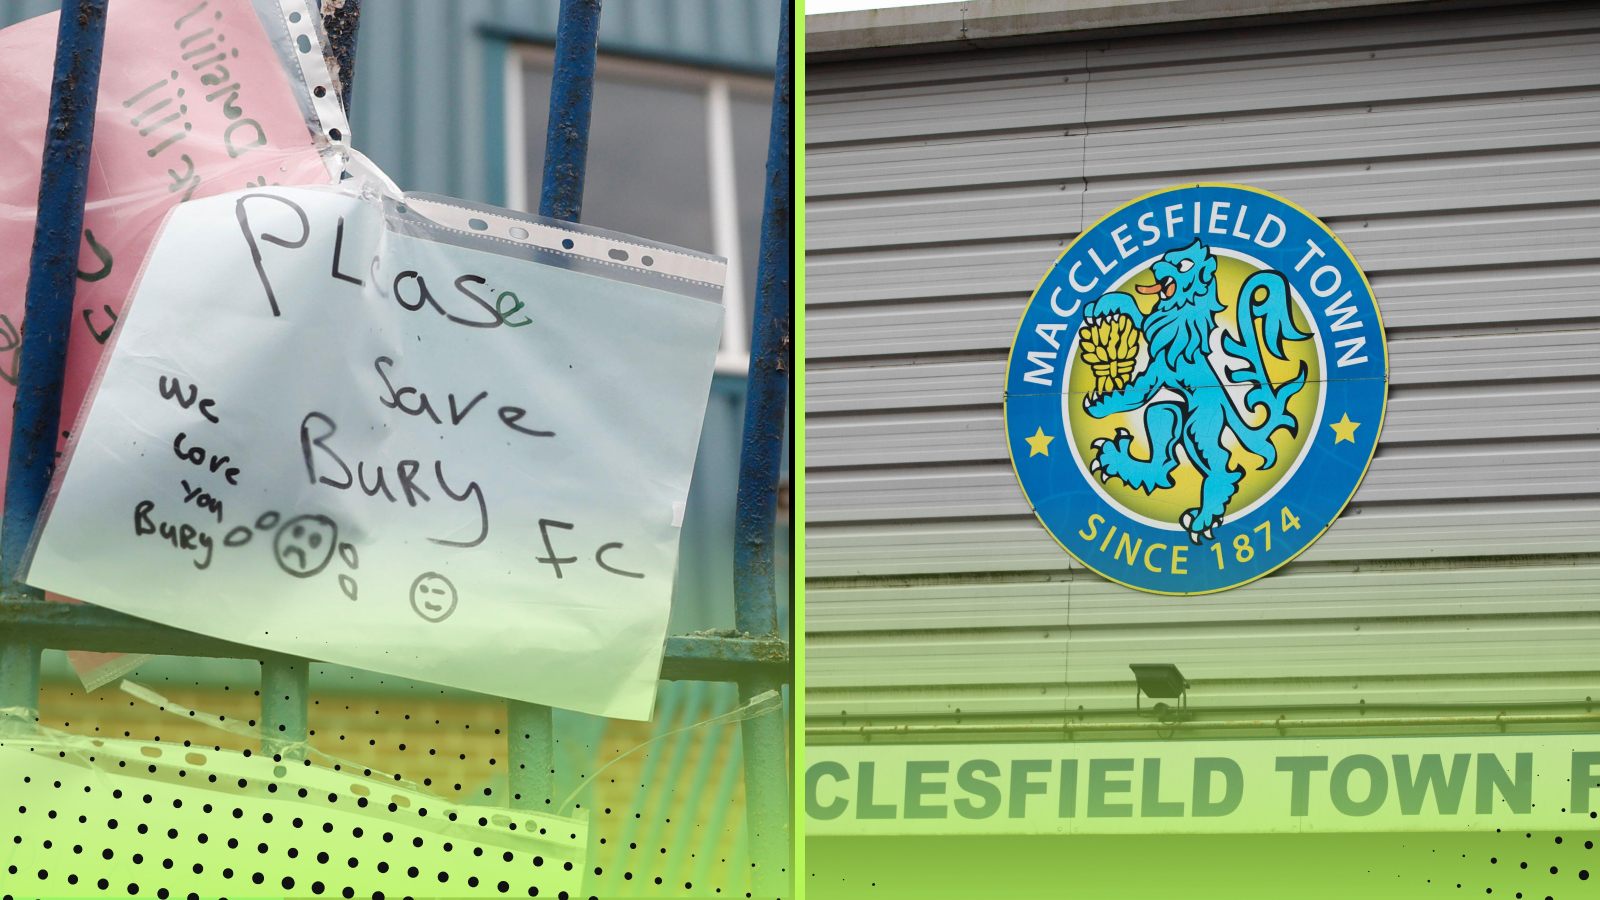 Please
Save
Bury FC
We
Love
You
Bury
MACCLESFIELD TOWN
SINCE 1874
CLESFIELD TOWN F